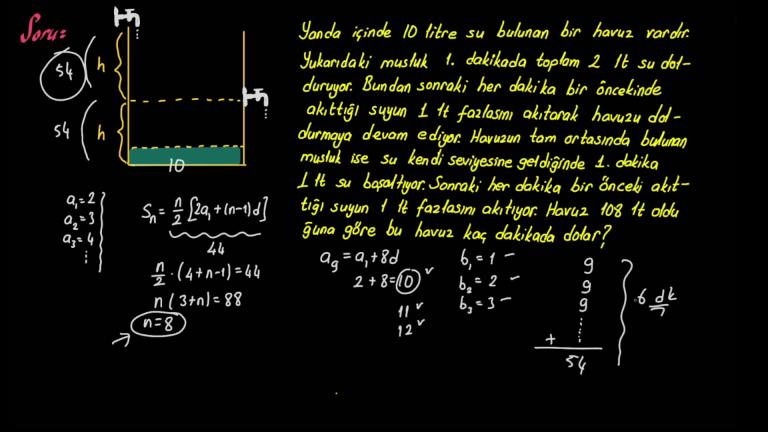 Soru:
Yanda içinde 10 litre su bulunan bir havuz vardır.
Yukarıdaki musluk 1. dakikada toplam 2 lt su dol-
duruyor. Bundan sonraki her dakika bir öncekinde
akıttığı suyun 1 lt fazlasını akıtarak havuzu dol-
durmaya devam ediyor. Havuzun tam ortasında bulunan
musluk ise su kendi seviyesine geldiğinde 1. dakika
1 lt su boşaltıyor. Sonraki her dakika bir önceki akıt-
tığı suyun 1 lt fazlasını akıtıyor. Havuz 108 lt oldu
ğuna göre bu havuz kaç dakikada dolar?
54 h
54 h
10
a₁=2
a₂=3
a₃=4
⋮
Sₙ = n/2 [2a₁+(n-1)d]
44
n/2 · (4+n-1) = 44
n(3+n) = 88
→ n=8
a₉ = a₁+8d
2+8=10 ✓
11 ✓
12 ✓
b₁ = 1 –
b₂ = 2 –
b₃ = 3 –
9
9
9
⋮
+
54
6 dk